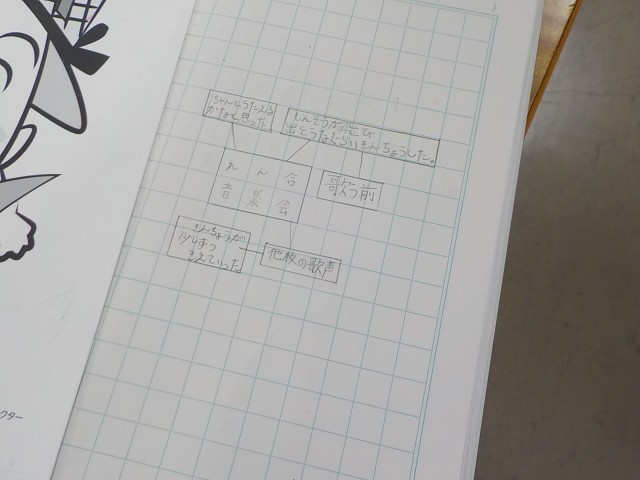 ちゃんとうたえる
かなと思った
しんぞうがとび
出そうなくらいきんちょうした。
れん合
音楽会
歌う前
きんちょうが
少しずつ
きえていった
他校の歌声
クター